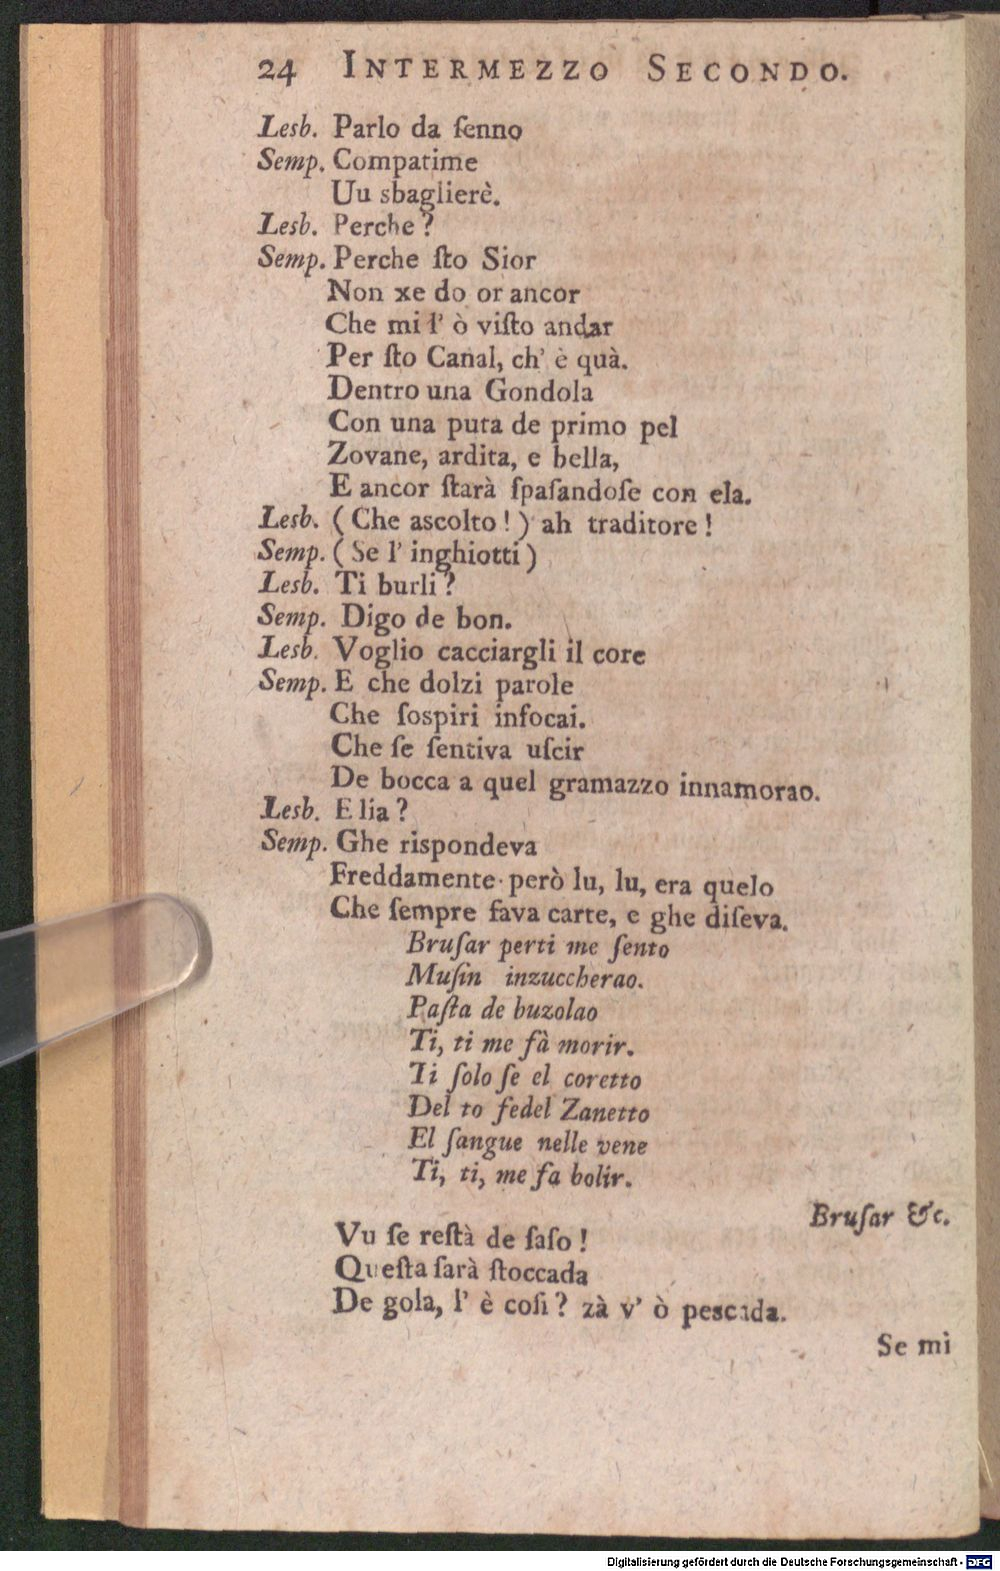 24 INTERMEZZO SECONDO.
Lesb. Parlo da ſenno
Semp. Compatime
Uu sbaglierè.
Lesb. Perche?
Semp. Perche ſto Sior
Non xe do or ancor
Che mi l' ò viſto andar
Per ſto Canal, ch' è quà.
Dentro una Gondola
Con una puta de primo pel
Zovane, ardita, e bella,
E ancor ſtarà ſpaſandoſe con ela.
Lesb. (Che ascolto!) ah traditore!
Semp. (Se l' inghiotti)
Lesb. Ti burli?
Semp. Digo de bon.
Lesb. Voglio cacciargli il core
Semp. E che dolzi parole
Che ſospiri infocai.
Che ſe ſentiva uſcir
De bocca a quel gramazzo innamorao.
Lesb. E lia?
Semp. Ghe rispondeva
Freddamente però lu, lu, era quelo
Che ſempre fava carte, e ghe diſeva.
Bruſar perti me ſento
Muſin inzuccherao.
Paſta de buzolao
Ti, ti me fà morir.
Ti ſolo ſe el coretto
Del to fedel Zanetto
El ſangue nelle vene
Ti, ti, me fa bolir.
Bruſar &c.
Vu ſe reſtà de ſaſo!
Queſta ſarà ſtoccada
De gola, l' è coſi? zà v' ò pescada.
Se mi
Digitalisierung gefördert durch die Deutsche Forschungsgemeinschaft - DFG